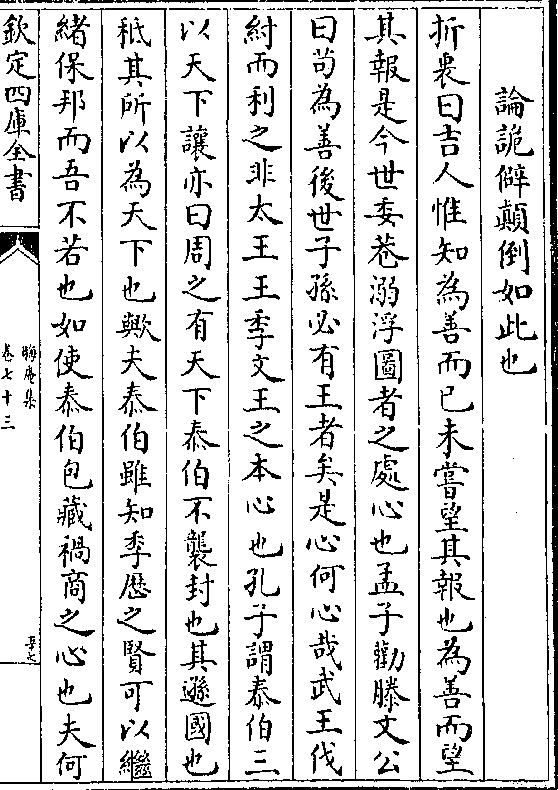 論詭僻顛倒如此也
折衷曰吉人惟知為善而已未嘗望其報也為善而望
其報是今世委巷溺浮圖者之處心也孟子勸滕文公
曰苟為善後世子孫必有王者矣是心何心哉武王伐
紂而利之非太王王季文王之本心也孔子謂泰伯三
以天下讓亦曰周之有天下泰伯不襲封也其遜國也
秪其所以為天下也歟夫泰伯雖知季歷之賢可以繼
緒保邦而吾不若也如使泰伯包藏禍商之心也夫何
欽定四庫全書
晦庵集
卷七十三